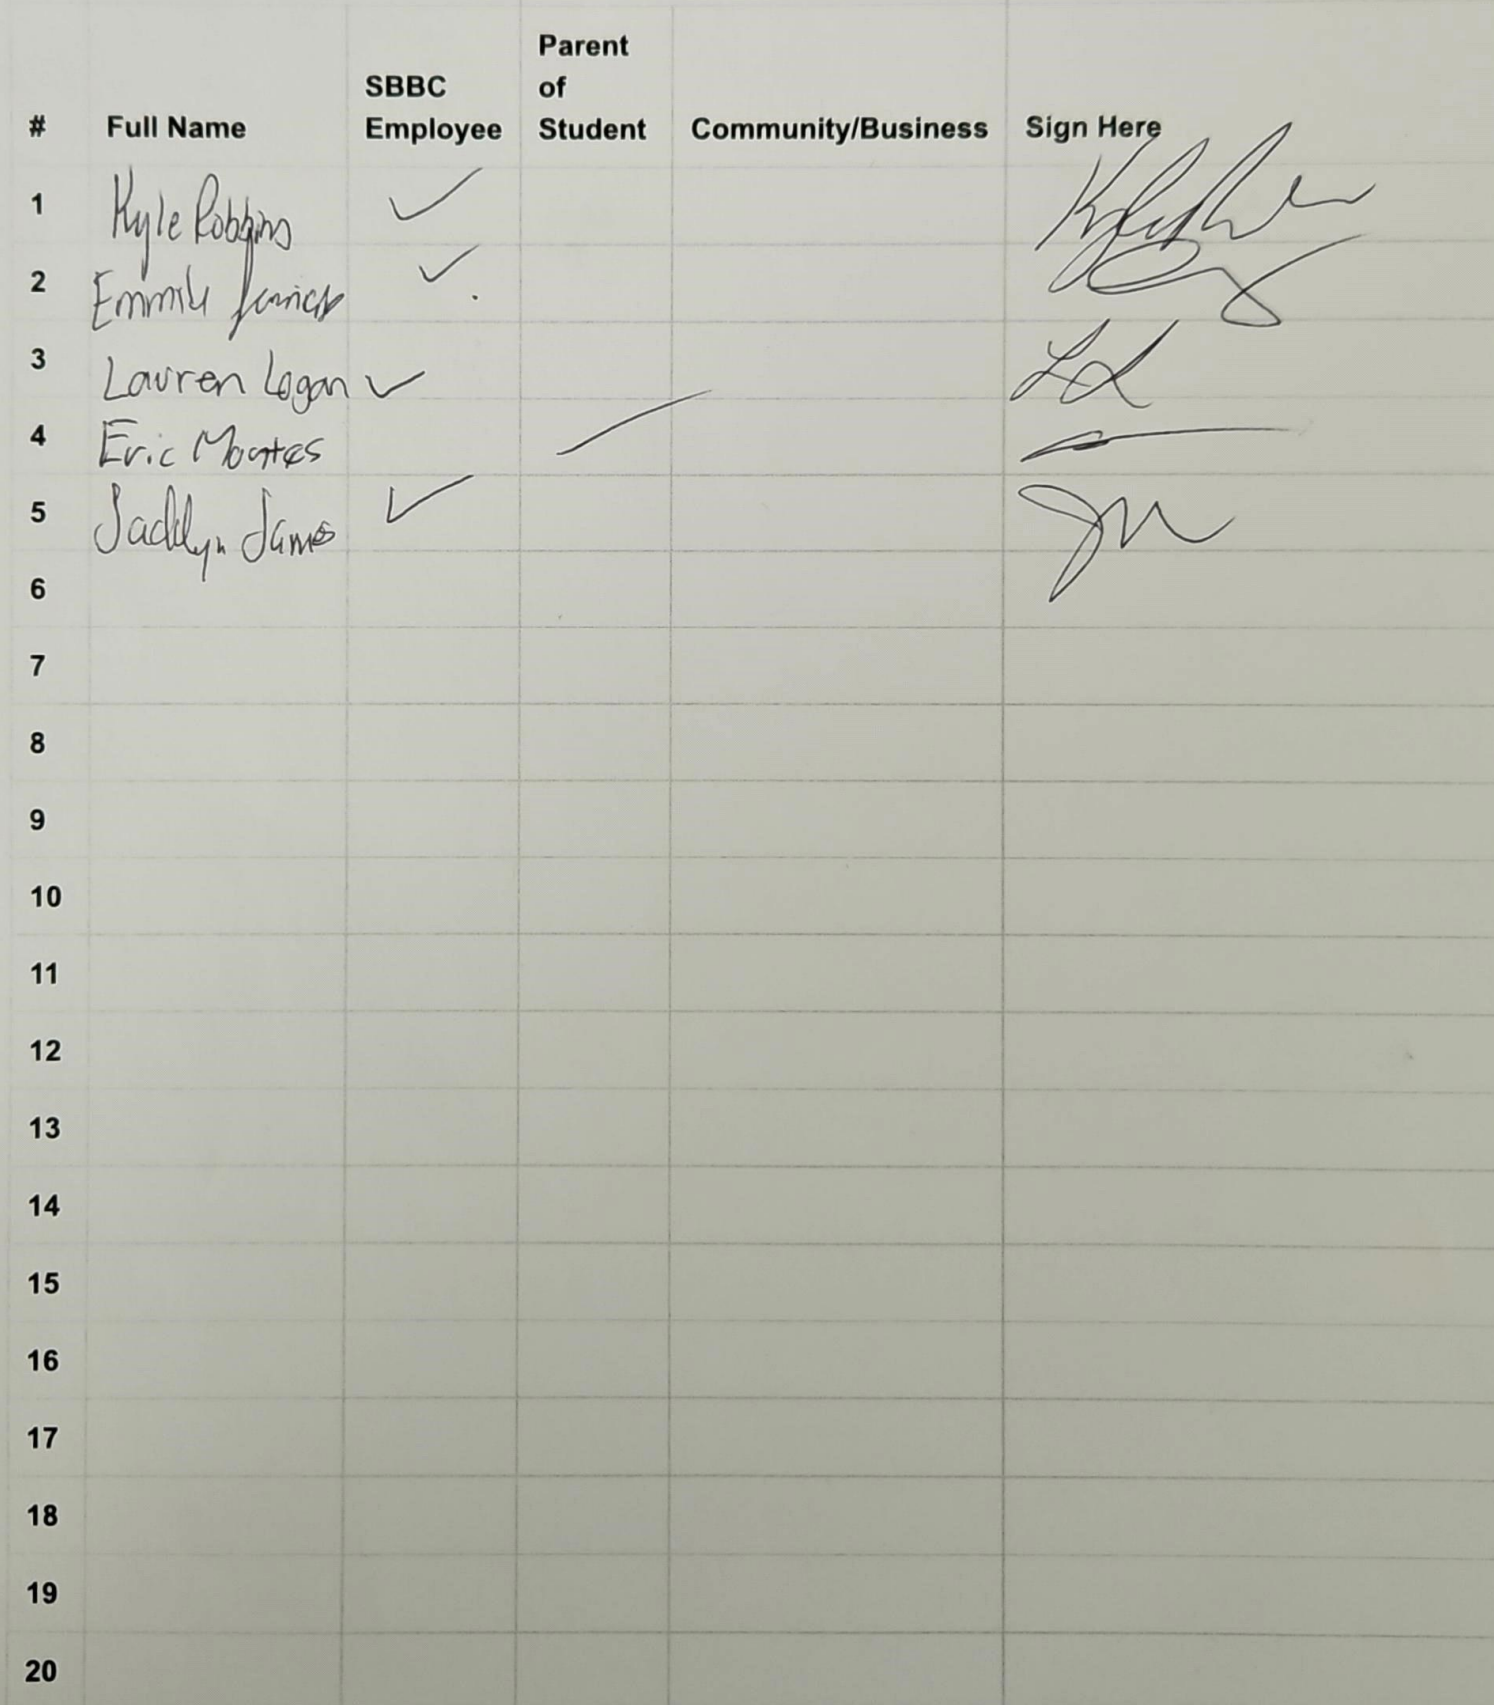 # Full Name SBBC Employee Parent of Student Community/Business Sign Here
1 Kyle Robbins ✓
2 ✓
3 Lauren Logan ✓
4 Eric
5 Jacklyn James ✓
6
7
8
9
10
11
12
13
14
15
16
17
18
19
20